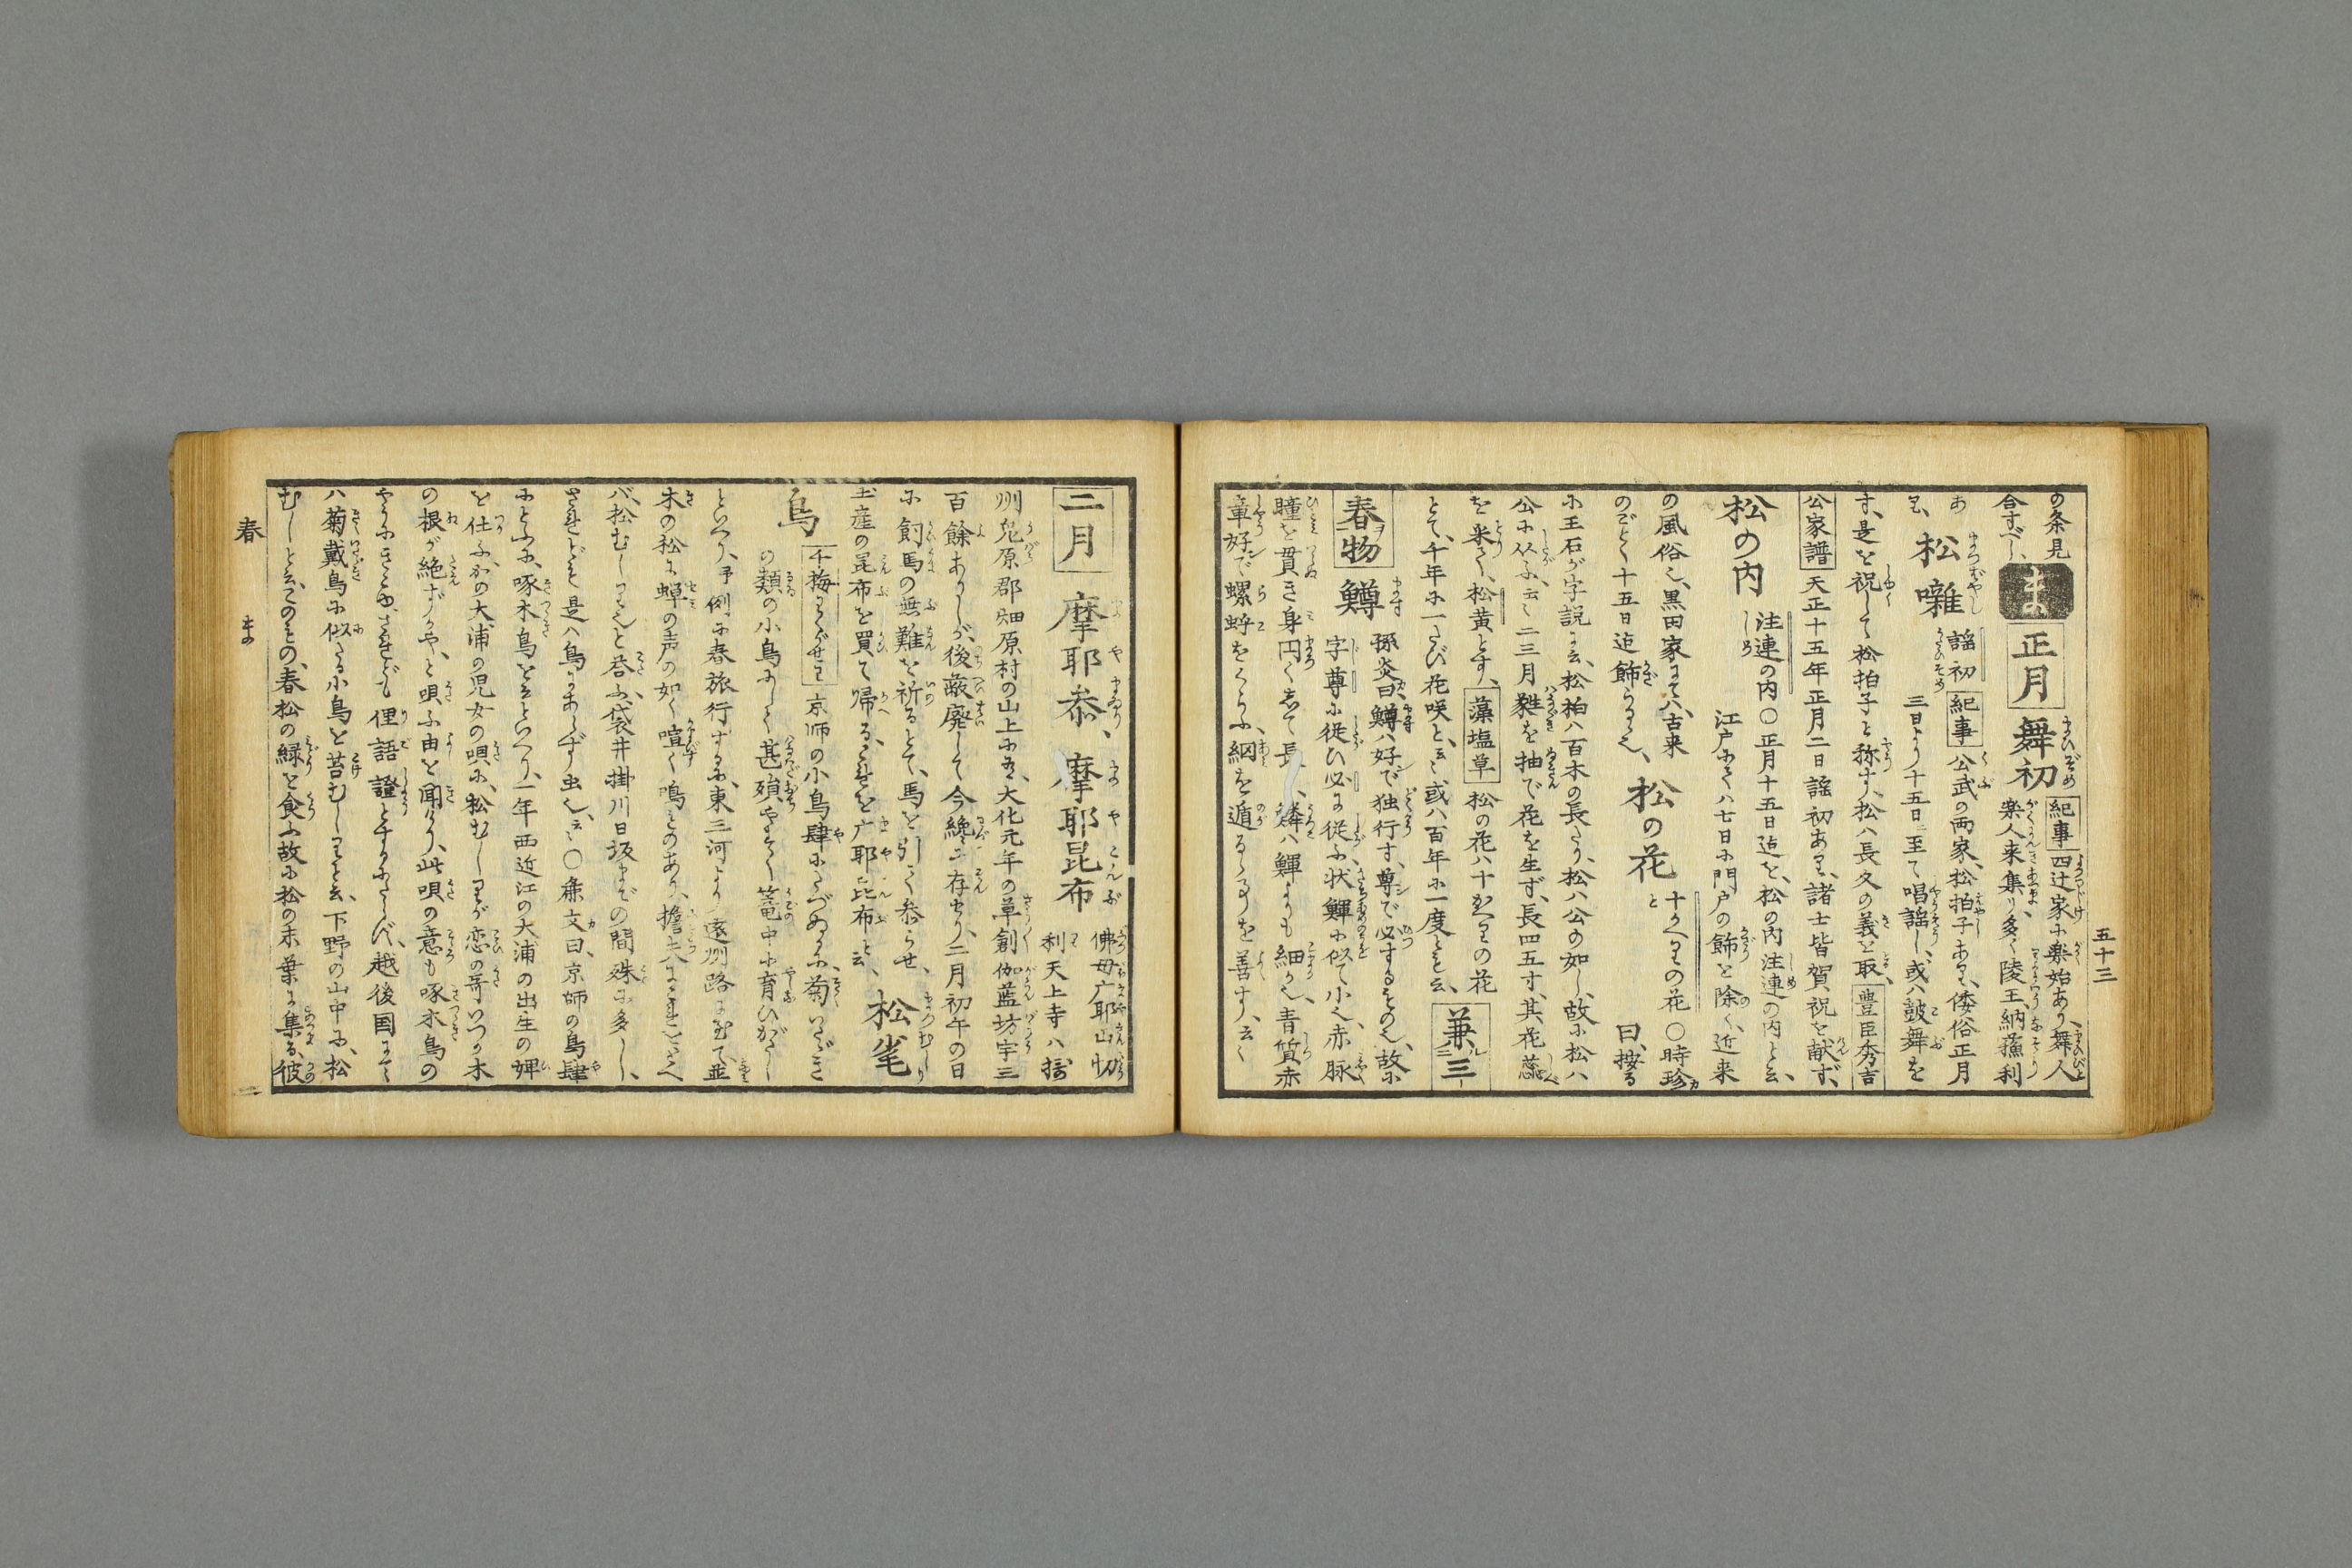 五十三
の条見
合すべし、
ま
正月
舞初
紀事 四辻家に楽始あり、舞人
楽人来集り多く陵王、納蘓利
あ
り、
松囃
謡初
紀事 公武の両家、松拍子あり、倭俗正月
三日より十五日ニ至て唱謡し、或ハ鼓舞を
す、是を祝して松拍子と称す、松ハ長久の義を取、豊臣秀吉
公家譜 天正十五年正月二日謡初あり、諸士皆賀祝を献ず、
松の内
注連の内〇正月十五日迄を、松の内注連の内と云、
江戸にてハ七日に門戸の飾を除く、近来
の風俗也、黒田家にてハ古来
のごとく十五日迄飾らるゝ也、
松の花
十かへりの花〇時珍
と
曰、按る
に王石が字説に云、松柏ハ百木の長たり、松ハ公の如し、故に松ハ
公に从ふ、云云二三月蕤を抽で花を生ず、長四五寸、其花蕊
を采て、松黄とす、藻塩草 松の花ハ十かへりの花
とて、千年に一たび花咲と、云云或ハ百年に一度とも云、
兼三
春物
鱒
孫炎曰、鱒ハ好で独行す、尊で必するもの也、故に
字尊に従ひ必に従ふ、状鯶に似て小也、赤脉
瞳を貫き身円くして長、鱗ハ鯶よりも細か也、青質赤
章好で螺蚌をくらふ、網を遁るゝ事を善す、云云
二月
摩耶参、
摩耶昆布
佛母广耶山忉
利天上寺ハ摂
州兎原郡畑原村の山上に有、大化元年の草創伽藍坊宇三
百餘ありしが、後敞廃して今纔ニ存せり、二月初午の日
に飼馬の無難を祈るとて、馬を引て参らせ、
土産の昆布を買て帰る、これを广耶昆布と云、
松毟
鳥
千梅 京师の小鳥肆にたづぬるに、菊いたゞき
の類の小鳥にして甚殞やすく篭中に育ひがたし
といへり、予例に春旅行するに、東三河より遠州路に至て、並
木の松に蝉の声の如く喧く鳴ものあり、擔夫に
バ、松むしり也と呑ふ、袋井掛川日坂までの間殊に多し、
されども是ハ鳥にあらず虫也、云云〇 文曰、京师の鳥肆
にとふに、啄木鳥を云といへり、一年西近江の大浦の出生の婢
を仕ふ、かの大浦の児女の唄に、松むしりが恋の哥いつか木
の根が絶すかや、と唄ふ由を聞けり、此唄の意も啄木鳥の
やうにきこゆ、されども俚語證とするにたらず、越後国にて
ハ菊戴鳥に似たる小鳥を苔むしりと云、下野の山中に、松
むしりと云ふものゝ、春松の緑を食ふ故に松の末葉に集る、彼
春
ま